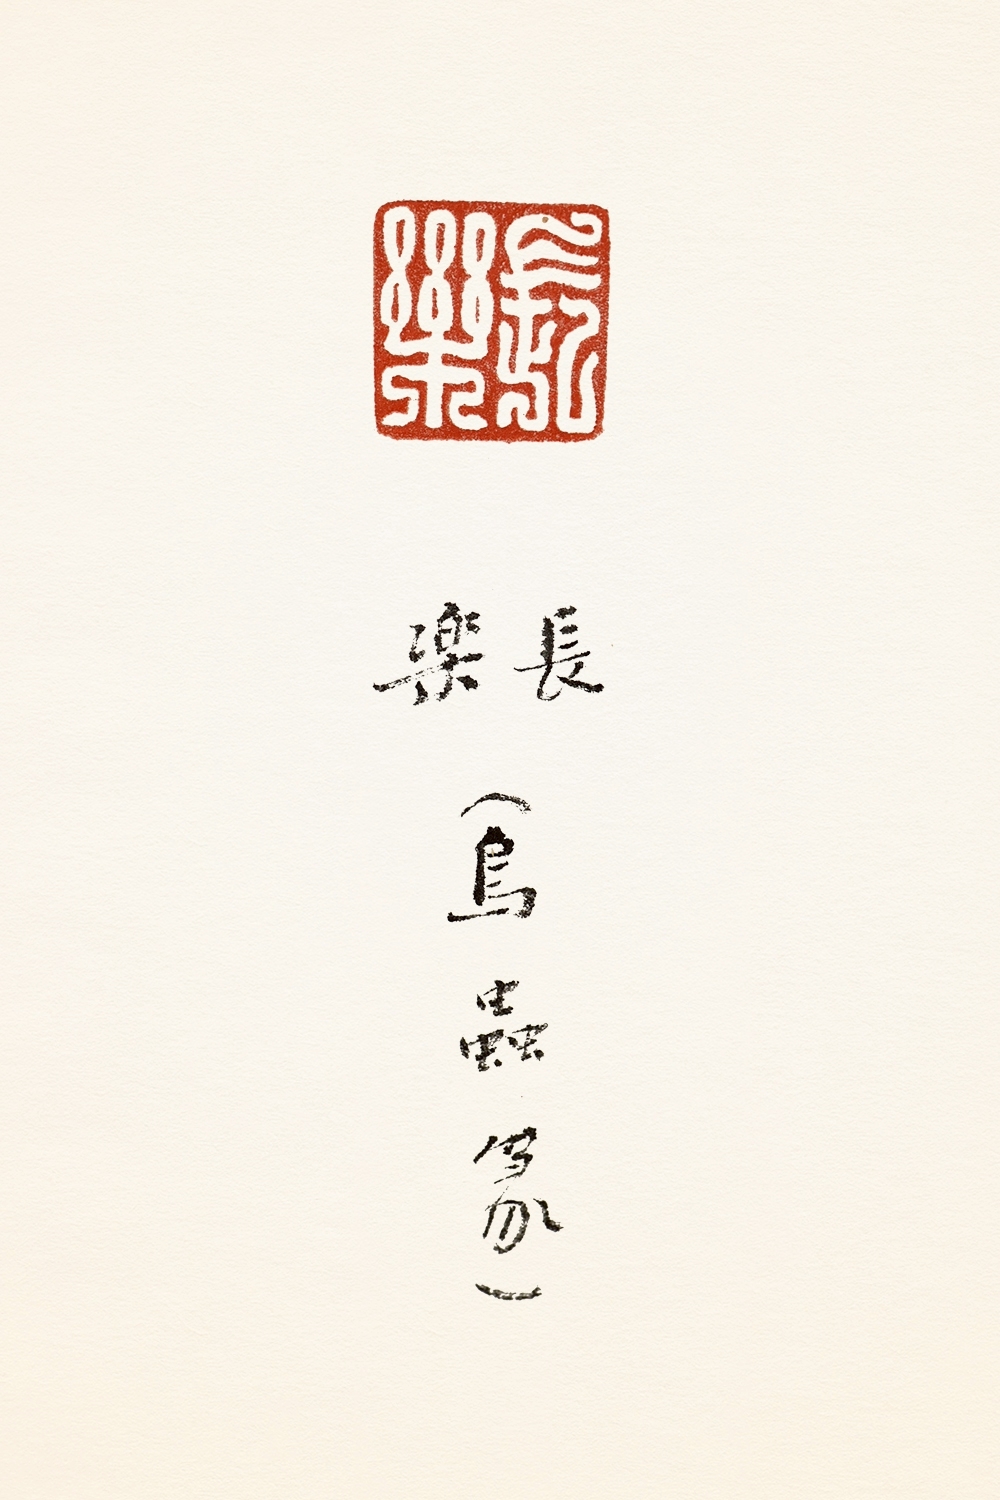 長樂
長樂
（鳥蟲篆）